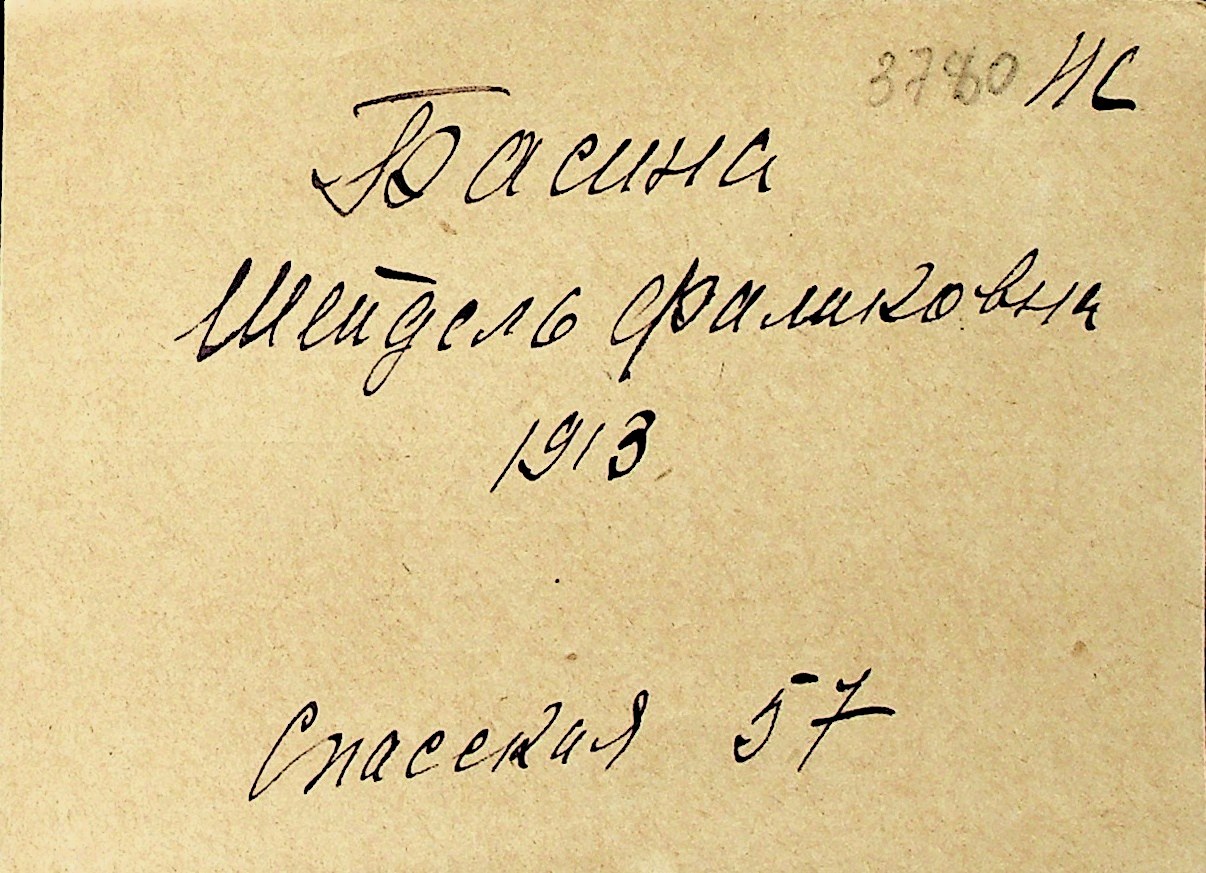 3780 НС
Басина
Шейдель Фаликовна
1913
Спасская 57